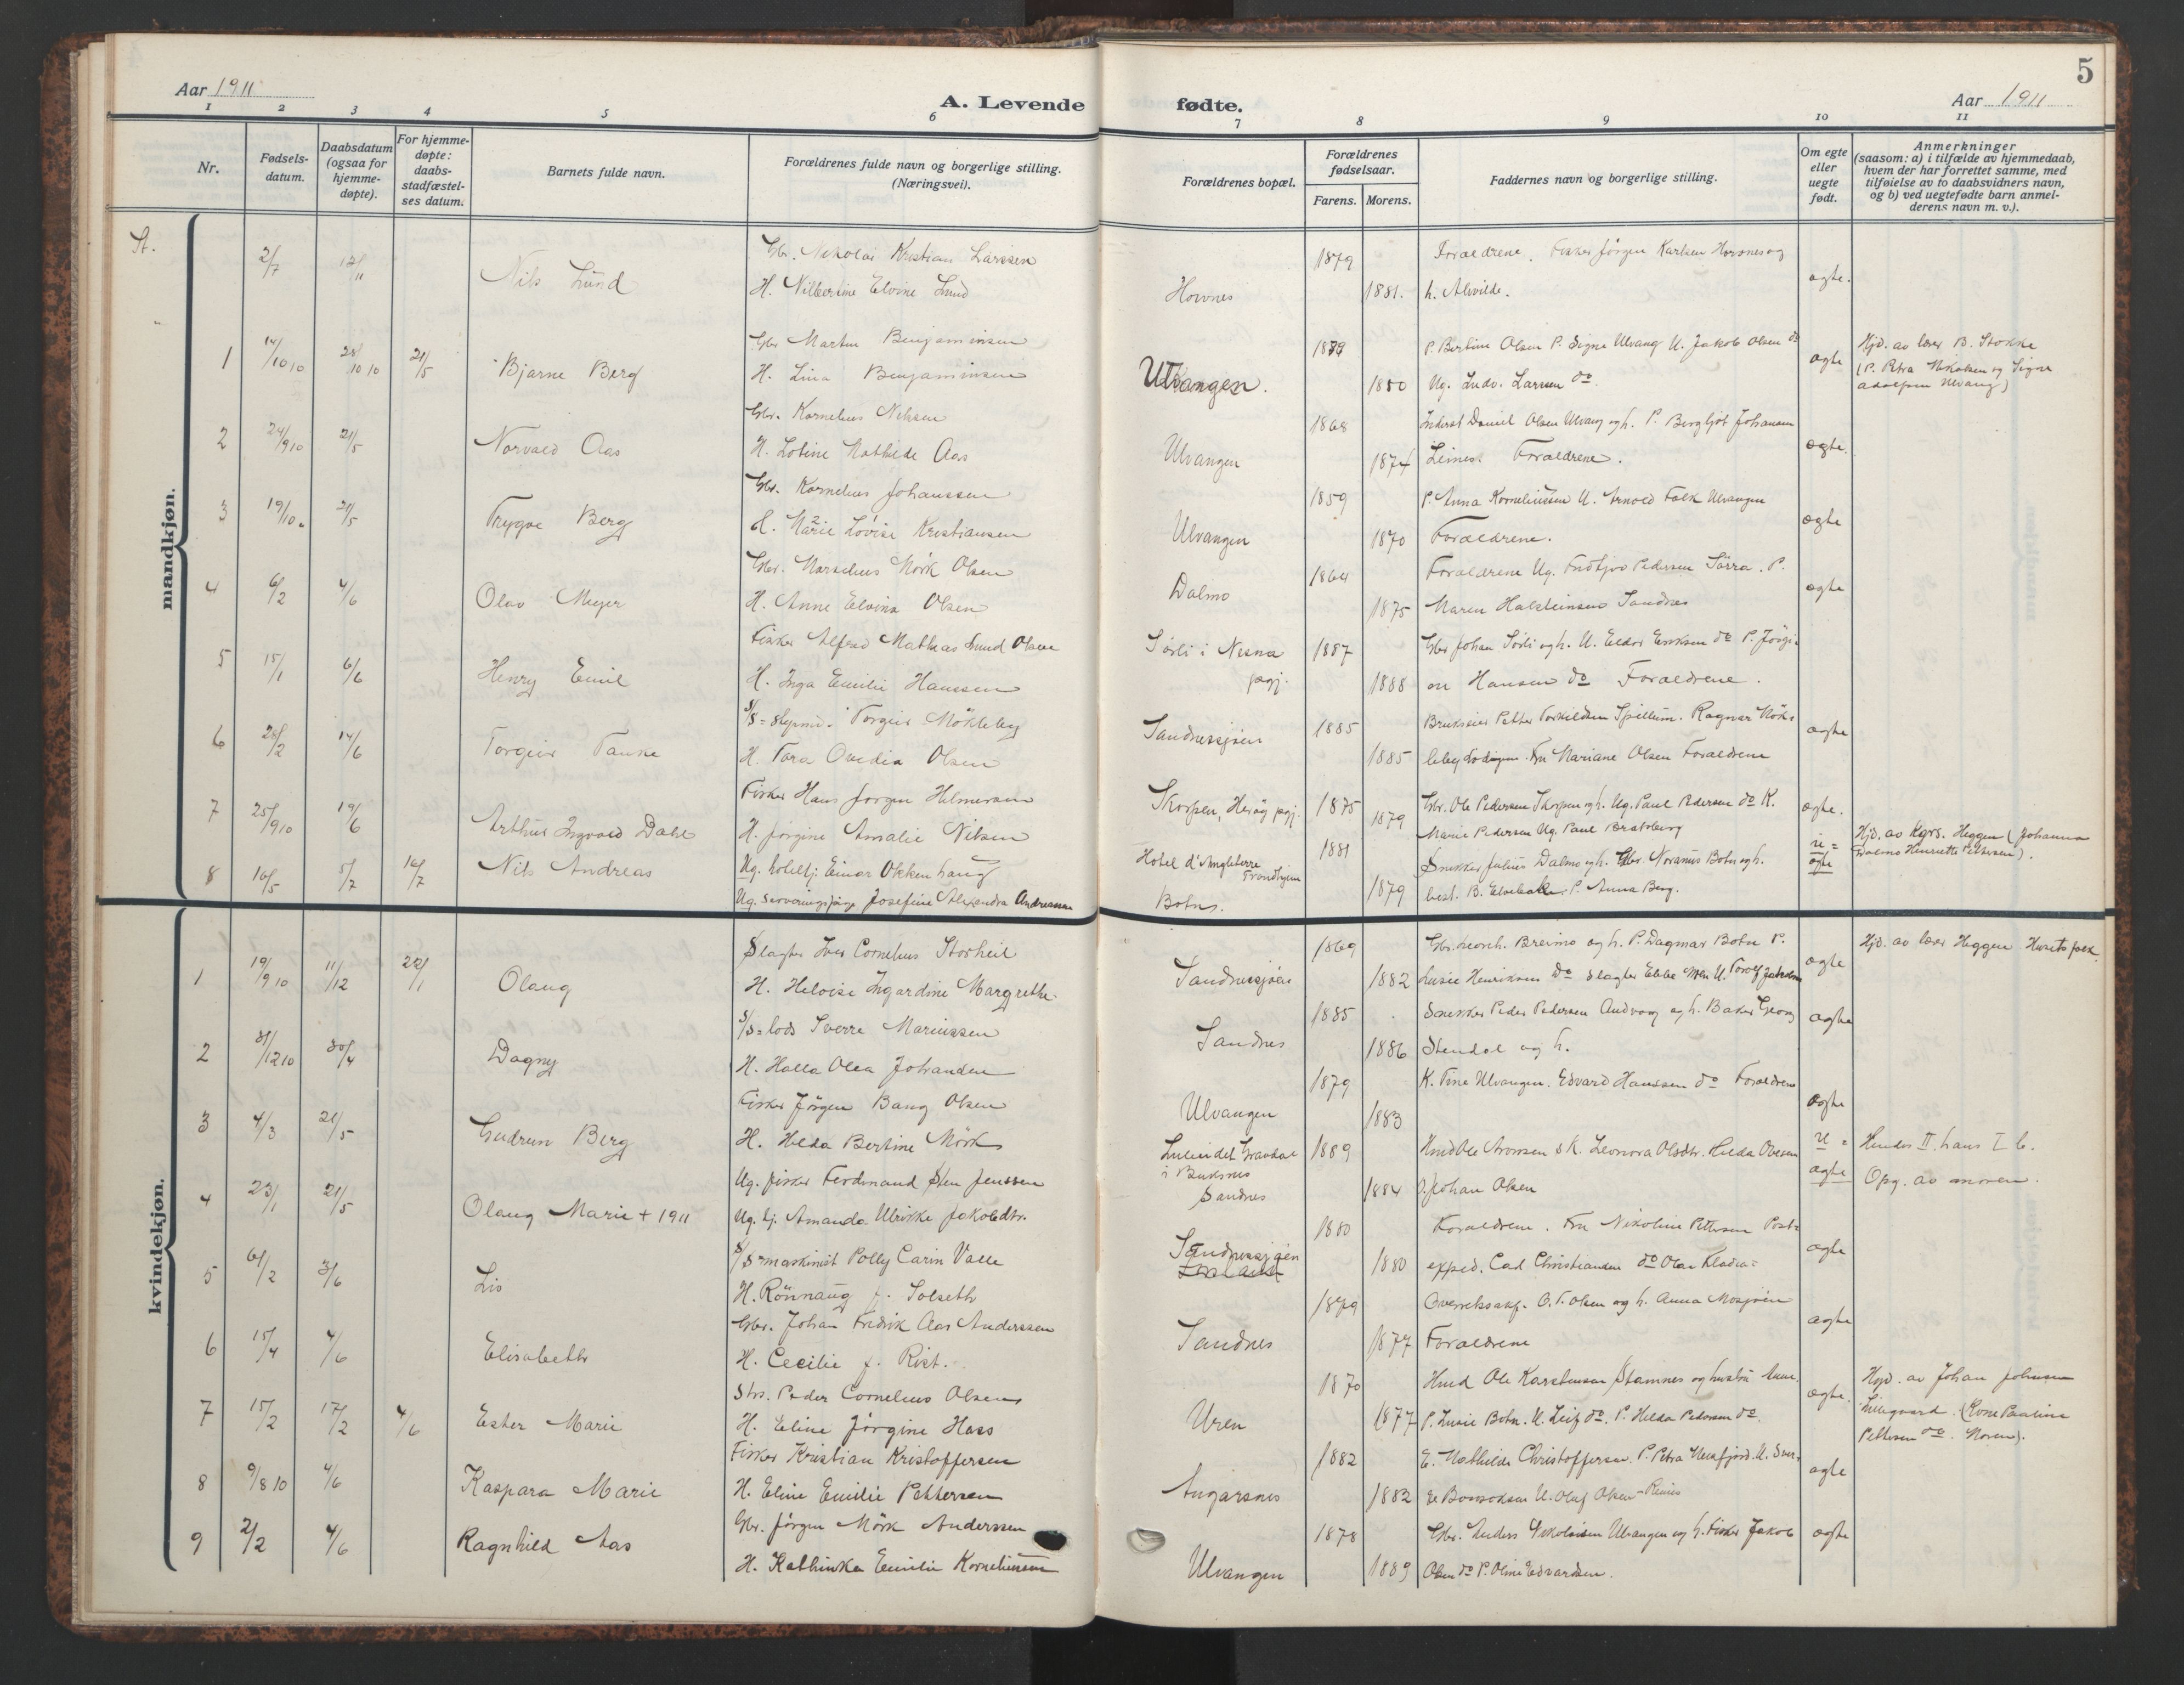 Aar 1911
A. Levende
fødte.
Aar 1911
5
1 2 3 4 5 6 7 8 9 10 11
Nr.
Fødsels-
datum.
Daabsdatum
(ogsaa for
hjemme-
døpte).
For hjemme-
døpte:
daabs-
stadfæstel-
ses datum.
Barnets fulde navn.
Forældrenes fulde navn og borgerlige stilling.
(Næringsvei).
Forældrenes bopæl.
Forældrenes
fødselsaar.
Farens. Morens.
Faddernes navn og borgerlige stilling.
Om egte
eller
uegte
født.
Anmerkninger
(saasom: a) i tilfælde av hjemmedaab,
hvem der har forrettet samme, med
tilføielse av to daabsvidners navn,
og b) ved uegtefødte barn anmel-
derens navn m. v.).
mandkjøn.
2/7 Nils Lund
Gbr. Nikolai Kristian Larssen
H. Elvine Lund
Hovnes 1879 1881.
Forældrene. Fisker Jørgen Karlsen Hovnes og
h. Alvilde.
ægte.
1 14/10 10 28/10 10 21/5 Bjarne Berg
Gbr Martin Benjaminsen
H. Lina Benjaminsen
Ulvangen. 1880
P. Bertine Olsen P. Signe Ulvang U. Jakob Olsen do
Ug. Ludv. Larssen do.
ægte
Hjd. av lærer B. Stokke
(P. Petra Nikolaisen og Signe
Ulvang)
2 24/9 10 21/5 Norvald Aas
Gbr. Kornelius Nilsen
H. Lotine Mathilde Aas
Ulvangen 1868 1874
Inderst Daniel Olsen Ulvang og h. P. Bergljot Johansen
Leines. Forældrene.
ægte.
3 19/10. 21/5 Trygve Berg
Gbr. Kornelius Johanssen
H. Marie Lovise Kristiansen
Ulvangen 1859 1870
P. Anna Korneliussen U. Arnold Falk Ulvangen
Forældrene.
ægte
4 6/2 4/6 Olav Meyer
Gbr. Marselius Mörk Olsen
H. Anne Elvina Olsen
Dalmo 1864 1875
Forældrene Ug. Fridtjov Pedersen Sörra. P.
Maren Halsteinsen Sandnes
ægte
5 15/1 6/6 Henry Emil
Fisker Alfred Mathias Lund Olsen
H. Inga Emilie Hanssen
Sörli i Nesna
pgj.
1887 1888
Gbr Johan Sörli og h. U. Eldor Eriksen do P. Jörgi-
ne Hansen do Forældrene.
6 28/2 14/6 Torgeir Tanke
S/S=styrmd. Torgeir Mökleby
H. Tora Ovedia Olsen
Sandnessjöen 1885 1885
Brukseier Petter Torkildsen Spillum. Ragnar Mök-
leby Lödingen. Fru Mariane Olsen Forældrene
ægte
7 25/9 10 19/6 Arthur Ingvald Dahl
Fisker Hans Jorgen Hilmersen
H. Jörgine Amalie Nilsen
Skorpen, Heröy pgj. 1875 1879
Gbr. Ole Pedersen Skorpen og h. Ug. Paul Pedersen do K.
Marie Pedersen Ug. Paul Bratsberg
ægte.
8 16/5 5/7 16/7 Nils Andreas
Ug. hotelltj. Einar Okkenhaug
Ug. serveringspige Josefine Alexandra Andreassen
Hotel d'Angleterre
Trondhjem
Botn.
1881 1879
Snekker Julius Dalmo og h. Gbr. Noranus Botn og h.
best. B. Elvebakk. P. Anna Berg.
u=
ægte
Hjd. av Kgrs. Heggen (Johanna
Dalmo Henriette Pettersen).
kvindekjøn.
1 19/9 10 11/12 22/1 Olaug
Slagter Iver Cornelius Storheil
H. Heloise Ingardine Margrethe
Sandnessjöen 1869 1882
Gbr. Leonh. Breimo og h. P. Dagmar Botn P.
Lusie Henriksen do Slagter Ebbe U. Torolf
ægte
Hjd. av lærer Heggen Husets folk.
2 31/12 10 30/4 Dagny
S/S=lods Sverre Mariussen
H. Halla Olea Johansen
Sandnes 1885 1886
Snekker Peder Pedersen Andvaag og h. Baker Georg
Stendal og h.
ægte
3 4/3 21/5 Gudrun Berg
Fisker Jörgen Bang Olsen
H. Hilda Bertine Mörk
Ulvangen 1879 1883
K. Tina Ulvangen. Edvard Hanssen do Forældrene
ægte
4 23/1 21/5 Olaug Marie + 1911
Ug. fisker Ferdinand Sten Jenssen
Ug. tj. Amanda Ulrikke Jakobdtr.
Gravdal
i Buksnes
Sandnes
1889 1884
Hmd Ole Aronsen & K. Leonora Olsdtr. Hilda Ovesen
Johan Olsen
u=
ægte
Hendes II, hans I b.
Opg. av moren.
5 6/2 3/6 Liv
S/S=maskinist Polly Carin Valle
H. Rönnaug f. Solseth
Sandnessjöen 1880 1880
Forældrene. Fru Nikoline Pettersen Post-
exped. Carl Christiansen do Olav
ægte
6 15/4 4/6 Elisabeth
Gbr. Johan Fredrik Aas Anderssen
H. Cecilie f. Rist.
Sandnes 1879 1877
Overretssakf. O. T. Olsen og h. Anna Mosjöen
Forældrene
ægte
7 15/2 17/2 4/6 Ester Marie
Str. Peder Cornelius Olsen
H. Eline Jörgine Hass
Uren 1870 1877
Hmd Ole Karstensen Stamnes og hustru Anne.
P. Lusie Botn. U. Leif do. P. Hilda Pedersen do.
ægte.
Hjd. av Johan Johnsen
(Kone Pauline
Pettersen do. Moren).
8 9/8 10 4/6 Kaspara Marie
Fisker Kristian Kristoffersen
H. Eline Emilie Pettersen
Angarsnes 1882 1882
E. Mathilde Christoffersen. P. Petra Nessfjord. U. Sver-
re U. Olaf Olsen
ægte
9 2/2 4/6 Ragnhild Aas
Gbr. Jörgen Mörk Anderssen
H. Kathinka Emilie Korneliussen
Ulvangen 1878 1889
Gbr. Anders Nikolaisen Ulvangen og h. Fisker Jakob
Olsen do P. Oline Edvardsen.
ægte